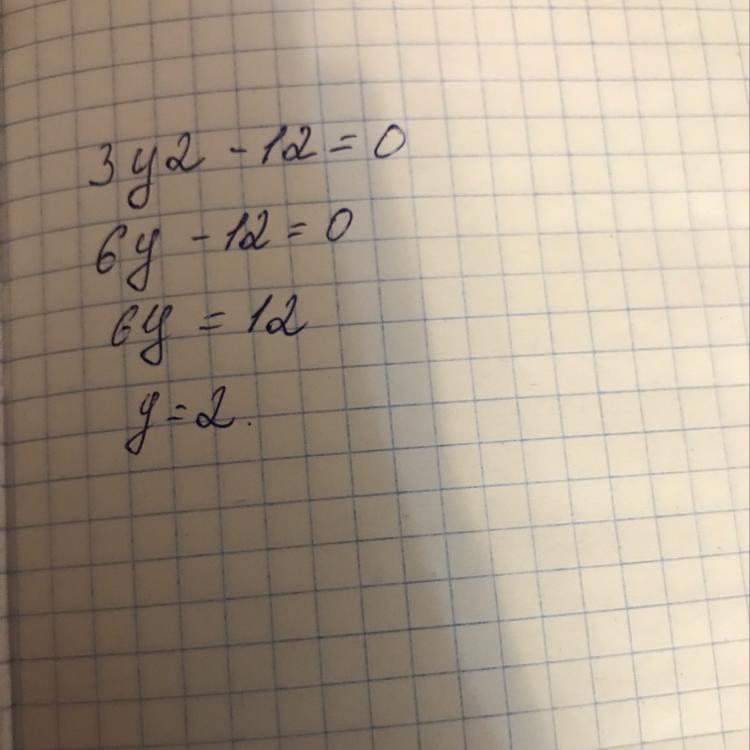 3y2 - 12 = 0
6y - 12 = 0
6y = 12
y = 2.